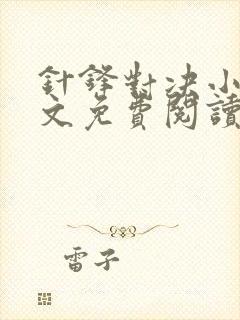 針鋒對決小
文免費閱讀
雷子